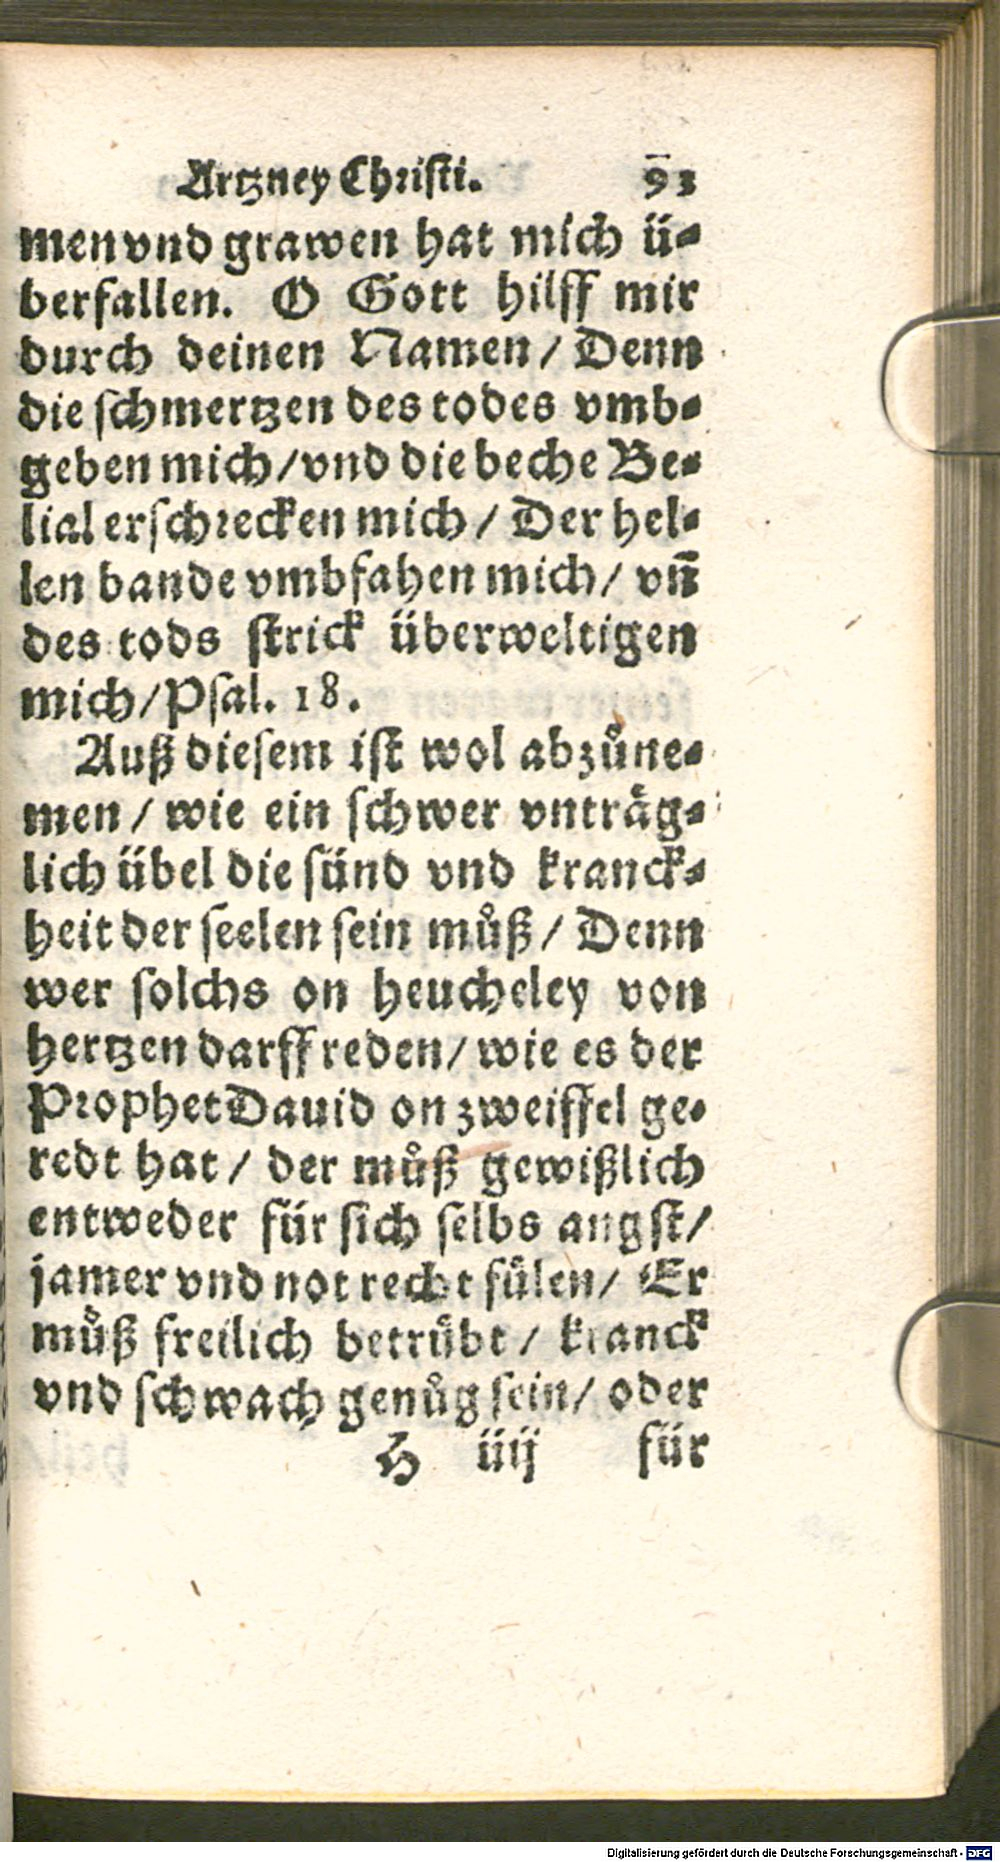 Artzney Christi. 93
men vnd grawen hat mich ü⸗
berfallen. O Gott hilff mir
durch deinen Namen / Denn
die schmertzen des todes vmb⸗
geben mich / vnd die beche Be⸗
lial erschrecken mich / Der hel⸗
len bande vmbfahen mich / vn̄
des tods strick überweltigen
mich / Psal. 18.
Auß diesem ist wol abzůne⸗
men / wie ein schwer vnträg⸗
lich übel die sünd vnd kranck⸗
heit der seelen sein můß / Denn
wer solchs on heucheley von
hertzen darff reden / wie es der
Prophet Dauid on zweiffel ge⸗
redt hat / der můß gewißlich
entweder für sich selbs angst /
jamer vnd not recht fülen / Er
můß freilich betrübt / kranck
vnd schwach genůg sein / oder
H iiij für
Digitalisierung gefördert durch die Deutsche Forschungsgemeinschaft - DFG